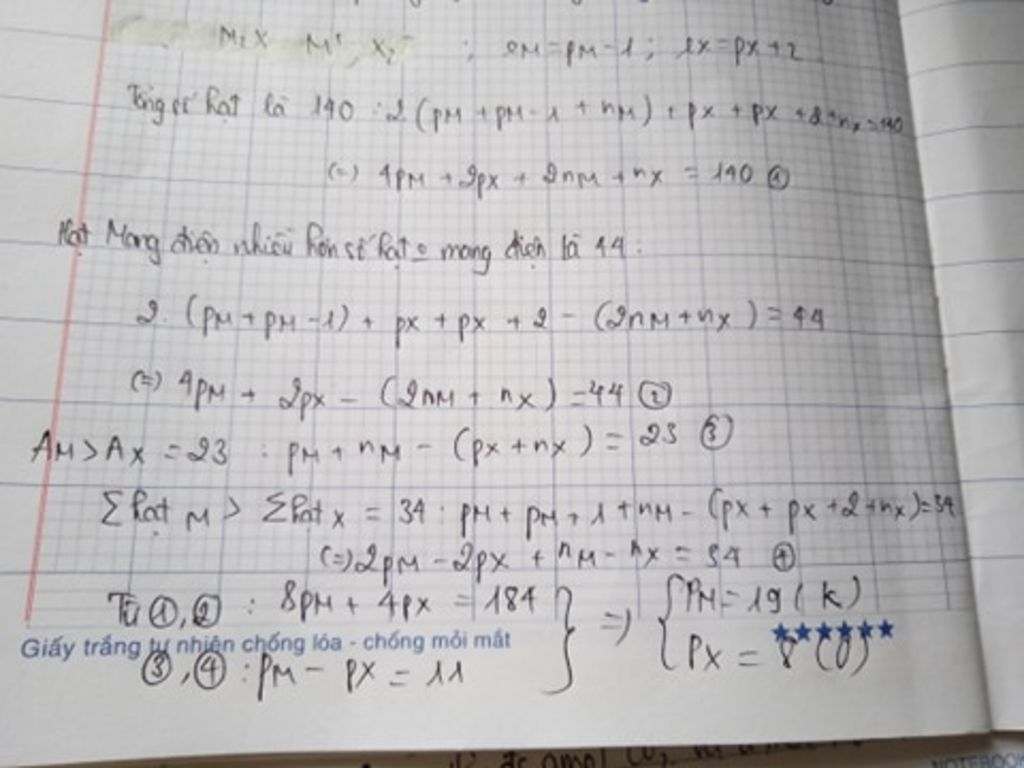 M₂X M⁺, X₂⁻ ; em = pM - 1 ; ex = px + 2
Tổng số hạt là 140 : 2 (pM + pM - 1 + nM) + px + px + 2 + nx = 140
(=) 4pM + 2px + 2nM + nx = 140 ①
Hạt Mang điện nhiều hơn số hạt 0 mang điện là 44 :
2. (pM + pM - 1) + px + px + 2 - (2nM + nx) = 44
(=) 4pM + 2px - (2nM + nx) = 44 ②
AM > AX = 23 : pM + nM - (px + nx) = 23 ③
Σhạt M > Σhạt X = 34 : pM + pM + 1 + nM - (px + px + 2 + nx) = 34
(=) 2pM - 2px + nM - nx = 34 ④
Từ ①, ② : 8pM + 4px = 184 } => { PM = 19 (k)
Giấy trắng tự nhiên chống lóa - chống mỏi mắt ★★★★★★
③, ④ : pM - px = 11 Px = 8 (O)
NOTEBOOK